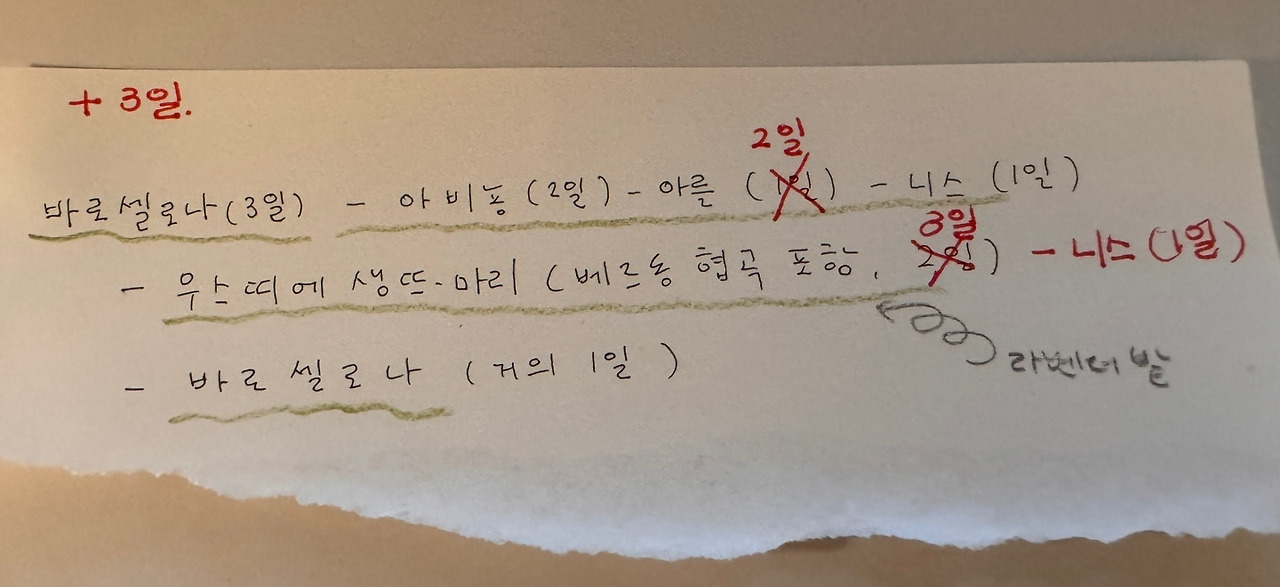 + 3일.
2일
바로셀로나 (3일) - 아비뇽 (2일) - 아를 (1일) - 니스 (1일)
3일
- 무스띠에 생뜨-마리 (베르동 협곡 포함, 2일) - 니스 (1일)
라벤더 밭
- 바로셀로나 (거의 1일)